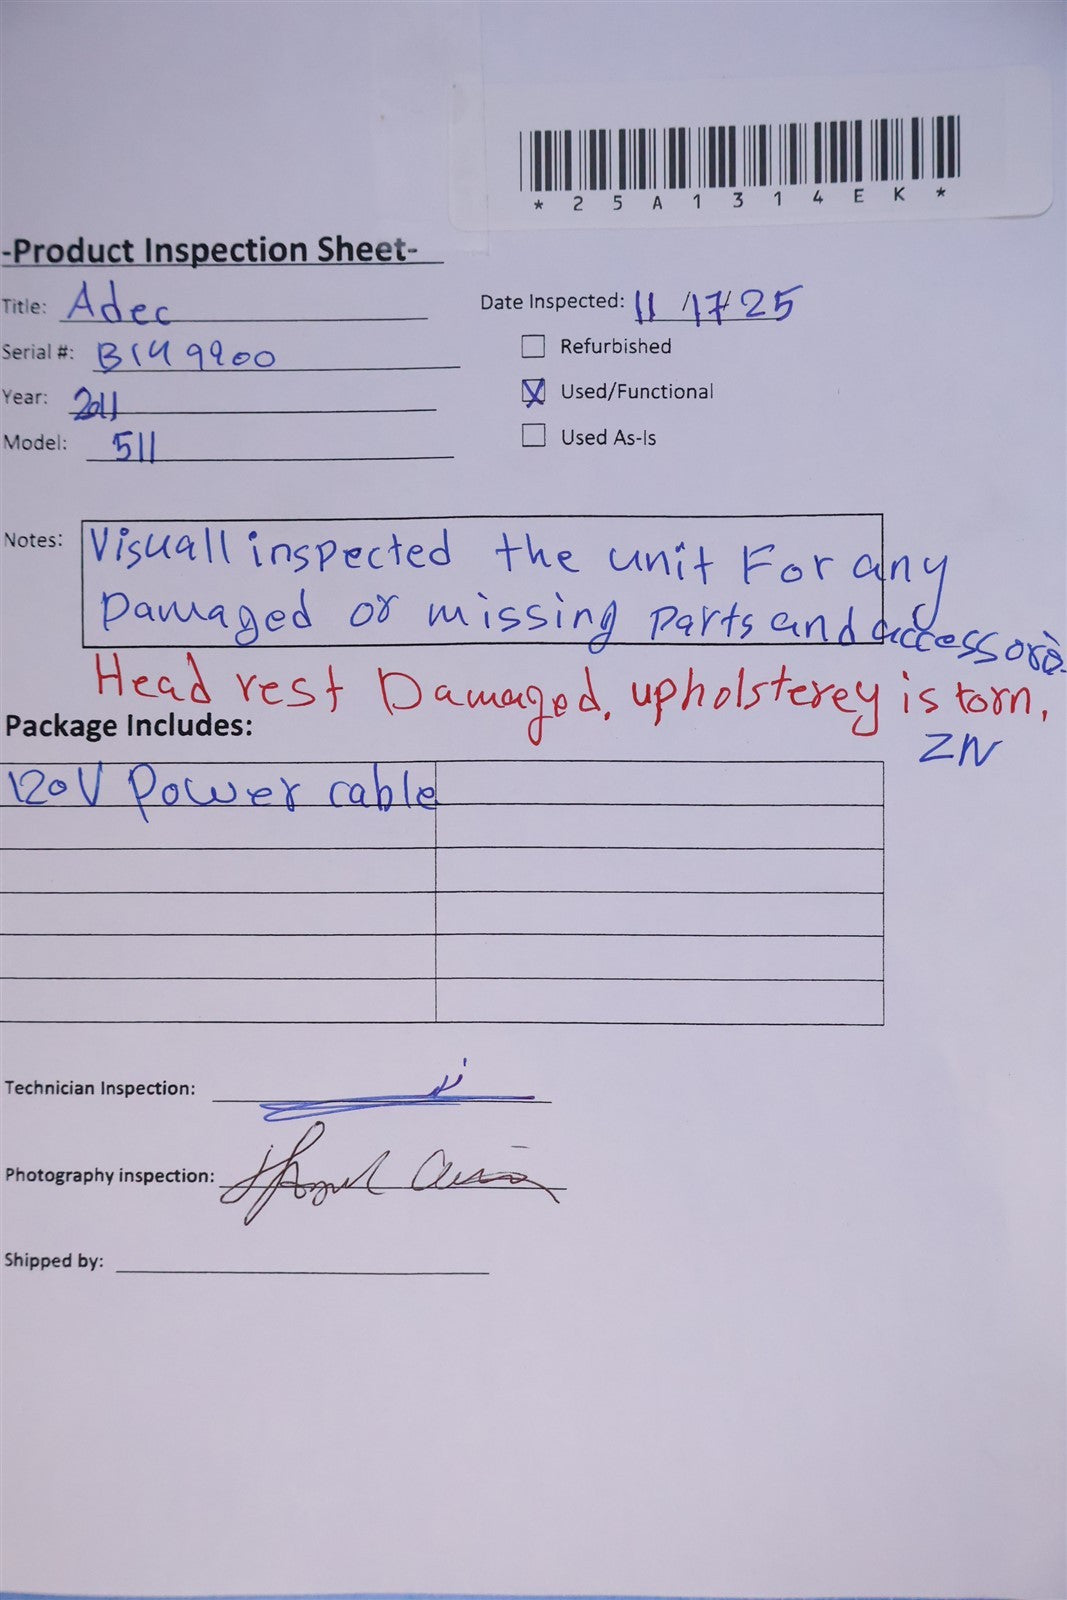 * 2 5 A 1 3 1 4 E K *
-Product Inspection Sheet-
Title: Adec
Date Inspected: 11/17/25
Refurbished
Serial #: B149900
Used/Functional
Year: 2011
Used As-Is
Model: 511
Notes: Visuall inspected the unit For any
Damaged or missing parts and
Head rest Damaged, upholsterey is torn.
Package Includes:
ZN
120V Power cable
Technician Inspection:
Photography inspection:
Shipped by: